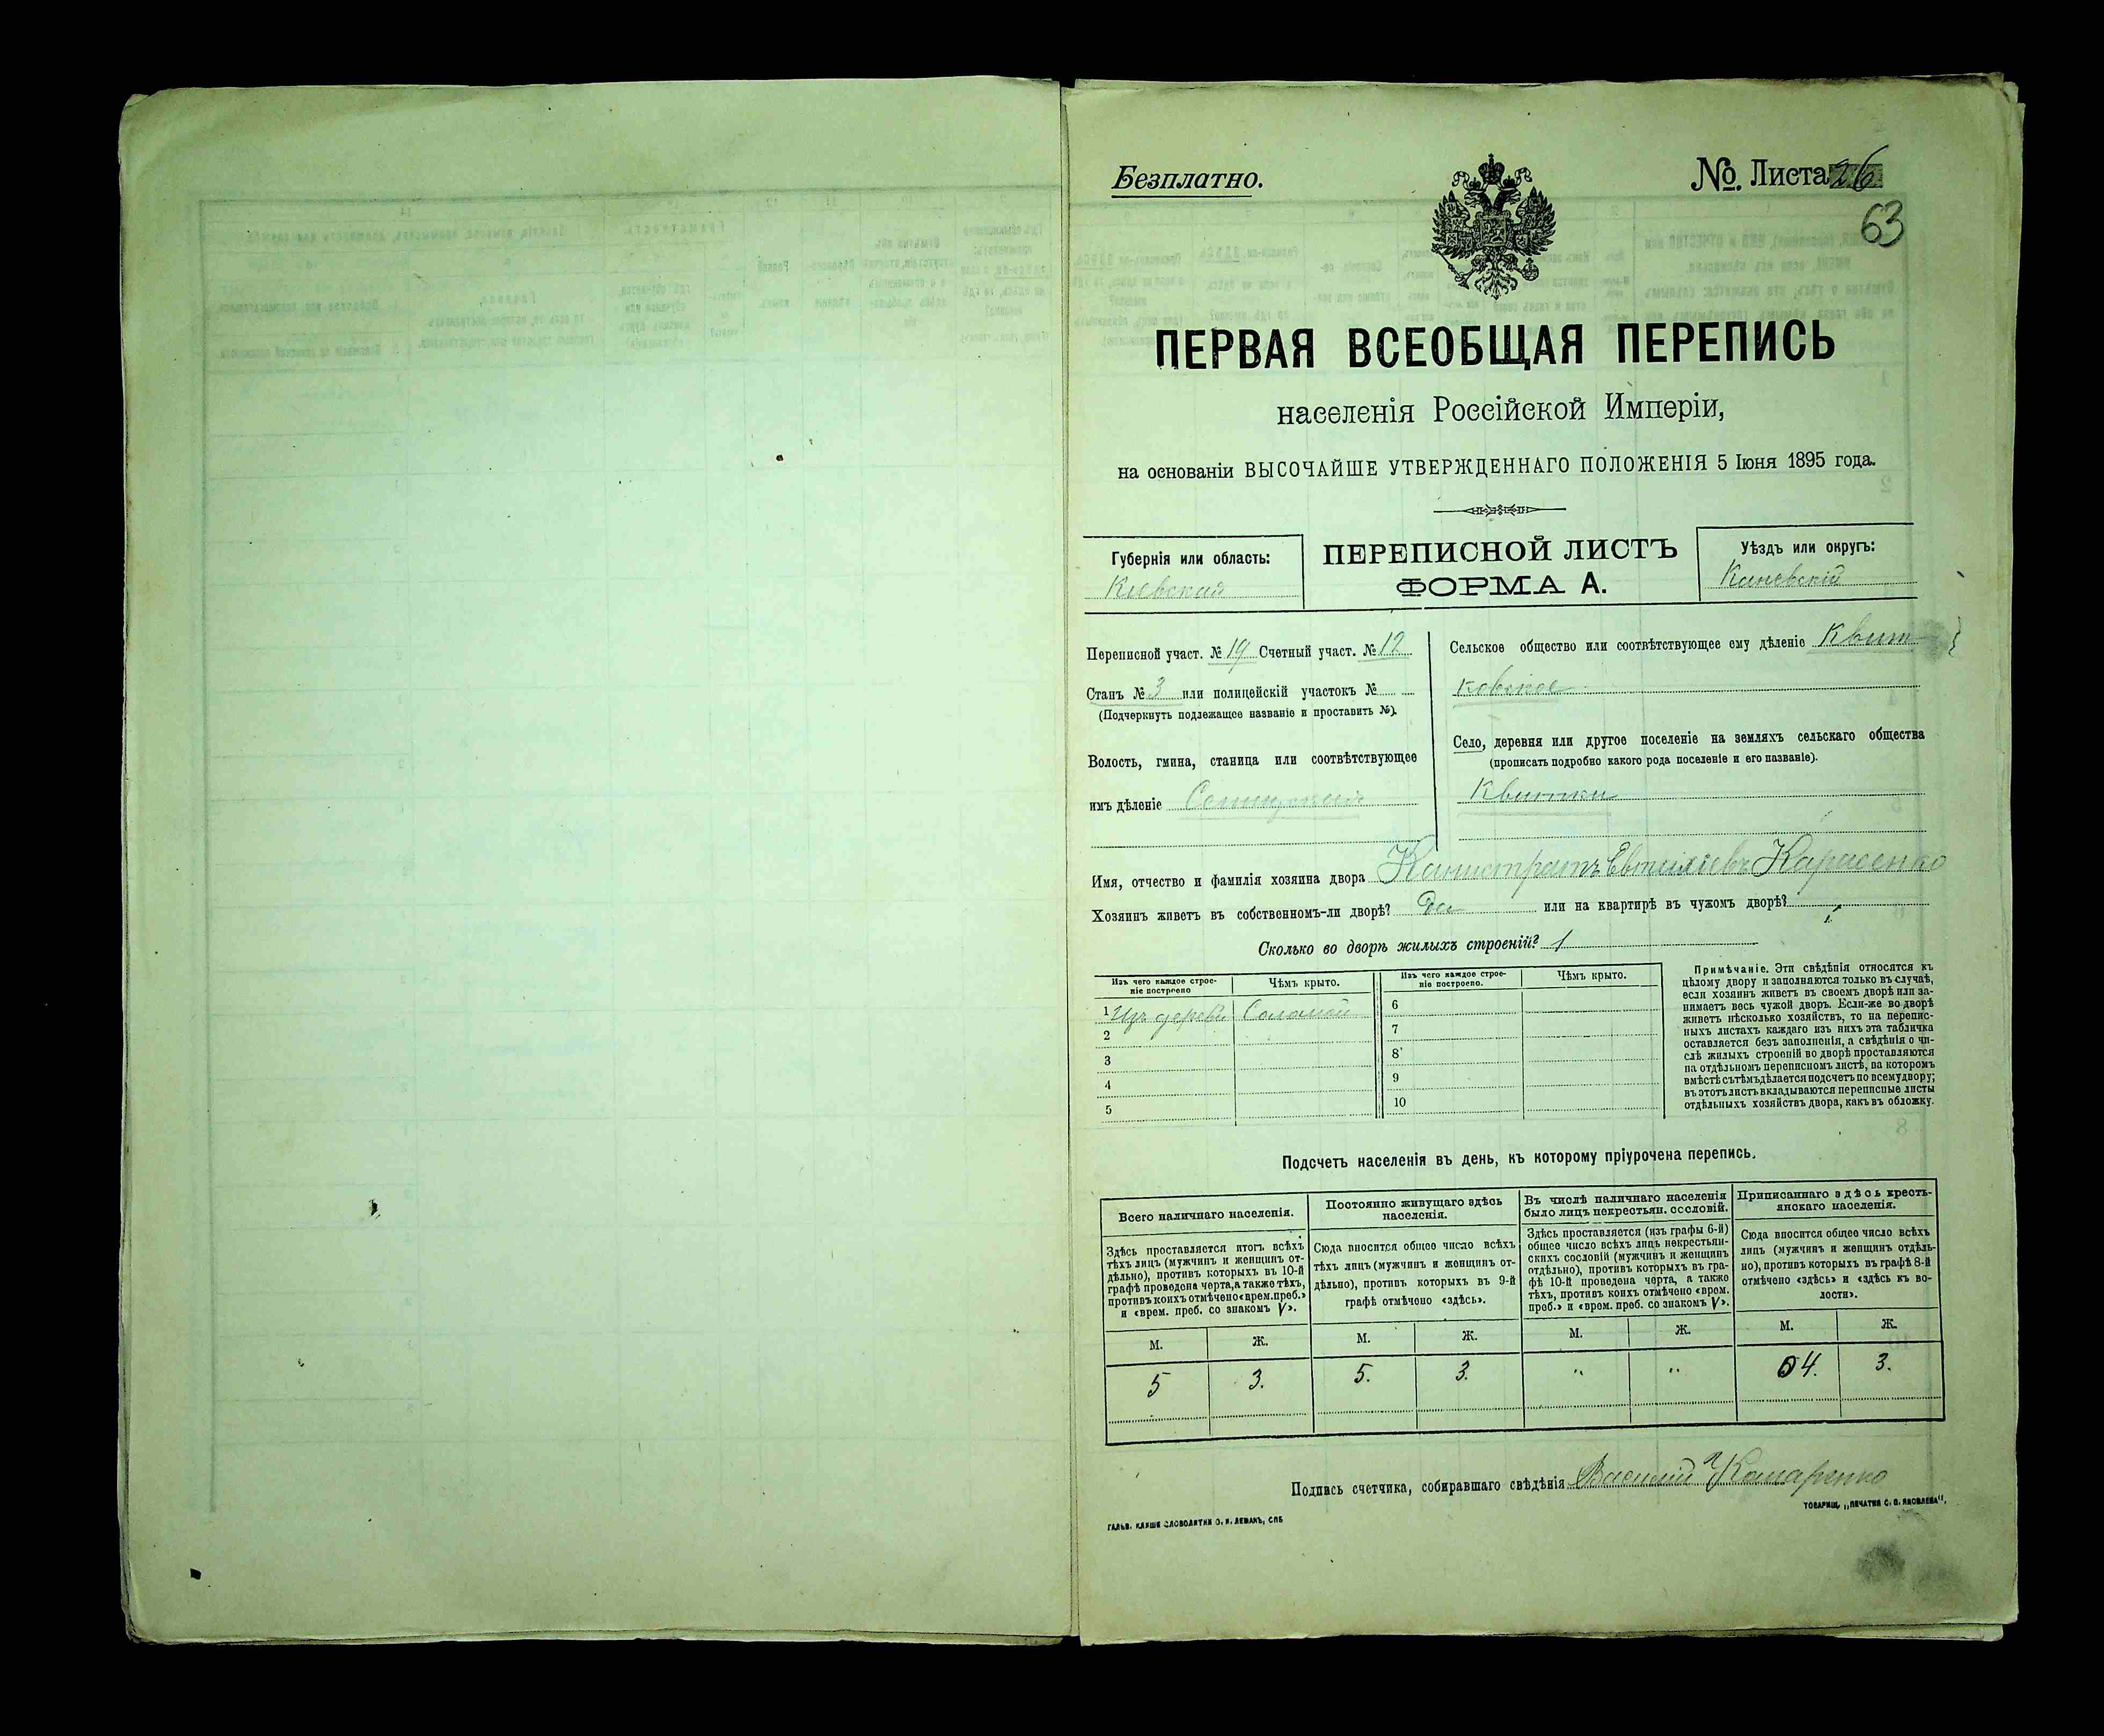 Безплатно.
№. Листа 26
63
ПЕРВАЯ ВСЕОБЩАЯ ПЕРЕПИСЬ
населенія Россійской Имперіи,
на основаніи ВЫСОЧАЙШЕ УТВЕРЖДЕННАГО ПОЛОЖЕНІЯ 5 Іюня 1895 года.
Губернія или область:
Кіевская
ПЕРЕПИСНОЙ ЛИСТЪ
ФОРМА А.
Уѣздъ или округъ:
Каневскій
Переписной участ. № 19 Счетный участ. № 12
Станъ № 3 или полицейскій участокъ №
(Подчеркнуть подлежащее названіе и проставить №).
Волость, гмина, станица или соотвѣтствующее
имъ дѣленіе
Сельское общество или соотвѣтствующее ему дѣленіе Квит-
ковское
Село, деревня или другое поселеніе на земляхъ сельскаго общества
(прописать подробно какого рода поселеніе и его названіе).
Квитки
Имя, отчество и фамилія хозяина двора Калистратъ
Хозяинъ живетъ въ собственномъ-ли дворѣ? Да или на квартирѣ въ чужомъ дворѣ?
Сколько во дворѣ жилыхъ строеній? 1
Изъ чего каждое строе-
ніе построено
Чѣмъ крыто.
Изъ чего каждое строе-
ніе построено.
Чѣмъ крыто.
1 Изъ дерева Соломой 6
2 7
3 8
4 9
5 10
Примѣчаніе. Эти свѣдѣнія относятся къ
цѣлому двору и заполняются только въ случаѣ,
если хозяинъ живетъ въ своемъ дворѣ или за-
нимаетъ весь чужой дворъ. Если-же во дворѣ
живетъ нѣсколько хозяйствъ, то на перепис-
ныхъ листахъ каждаго изъ нихъ эта табличка
оставляется безъ заполненія, а свѣдѣнія о чи-
слѣ жилыхъ строеній во дворѣ проставляются
на отдѣльномъ переписномъ листѣ, на которомъ
вмѣстѣ съ тѣмъ дѣлается подсчетъ по всему двору;
въ этотъ листъ вкладываются переписные листы
отдѣльныхъ хозяйствъ двора, какъ въ обложку.
Подсчетъ населенія въ день, къ которому пріурочена перепись.
Всего наличнаго населенія.
Здѣсь проставляется итогъ всѣхъ
тѣхъ лицъ (мужчинъ и женщинъ от-
дѣльно), противъ которыхъ въ 10-й
графѣ проведена черта, а также тѣхъ,
противъ коихъ отмѣчено «врем. преб.»
и «врем. преб. со знакомъ V».
Постоянно живущаго здѣсь
населенія.
Сюда вносится общее число всѣхъ
тѣхъ лицъ (мужчинъ и женщинъ от-
дѣльно), противъ которыхъ въ 9-й
графѣ отмѣчено «здѣсь».
Въ числѣ наличнаго населенія
было лицъ некрестьян. сословій.
Здѣсь проставляется (изъ графы 6-й)
общее число всѣхъ лицъ некрестьян-
скихъ сословій (мужчинъ и женщинъ
отдѣльно), противъ которыхъ въ гра-
фѣ 10-й проведена черта, а также
тѣхъ, противъ коихъ отмѣчено «врем.
преб.» и «врем. преб. со знакомъ V».
Приписаннаго здѣсь кресть-
янскаго населенія.
Сюда вносится общее число всѣхъ
лицъ (мужчинъ и женщинъ отдѣль-
но), противъ которыхъ въ графѣ 8-й
отмѣчено «здѣсь» и «здѣсь къ во-
лости».
М. Ж. М. Ж. М. Ж. М. Ж.
5 3. 5. 3. „ „ 4. 3.
Подпись счетчика, собиравшаго свѣдѣнія Василій Комаренко
ГАЛЬВ. КЛИШЕ СЛОВОЛИТНИ О. И. ЛЕМАНЪ, СПБ
ТОВАРИЩ. „ПЕЧАТНЯ С. П. ЯКОВЛЕВА“.